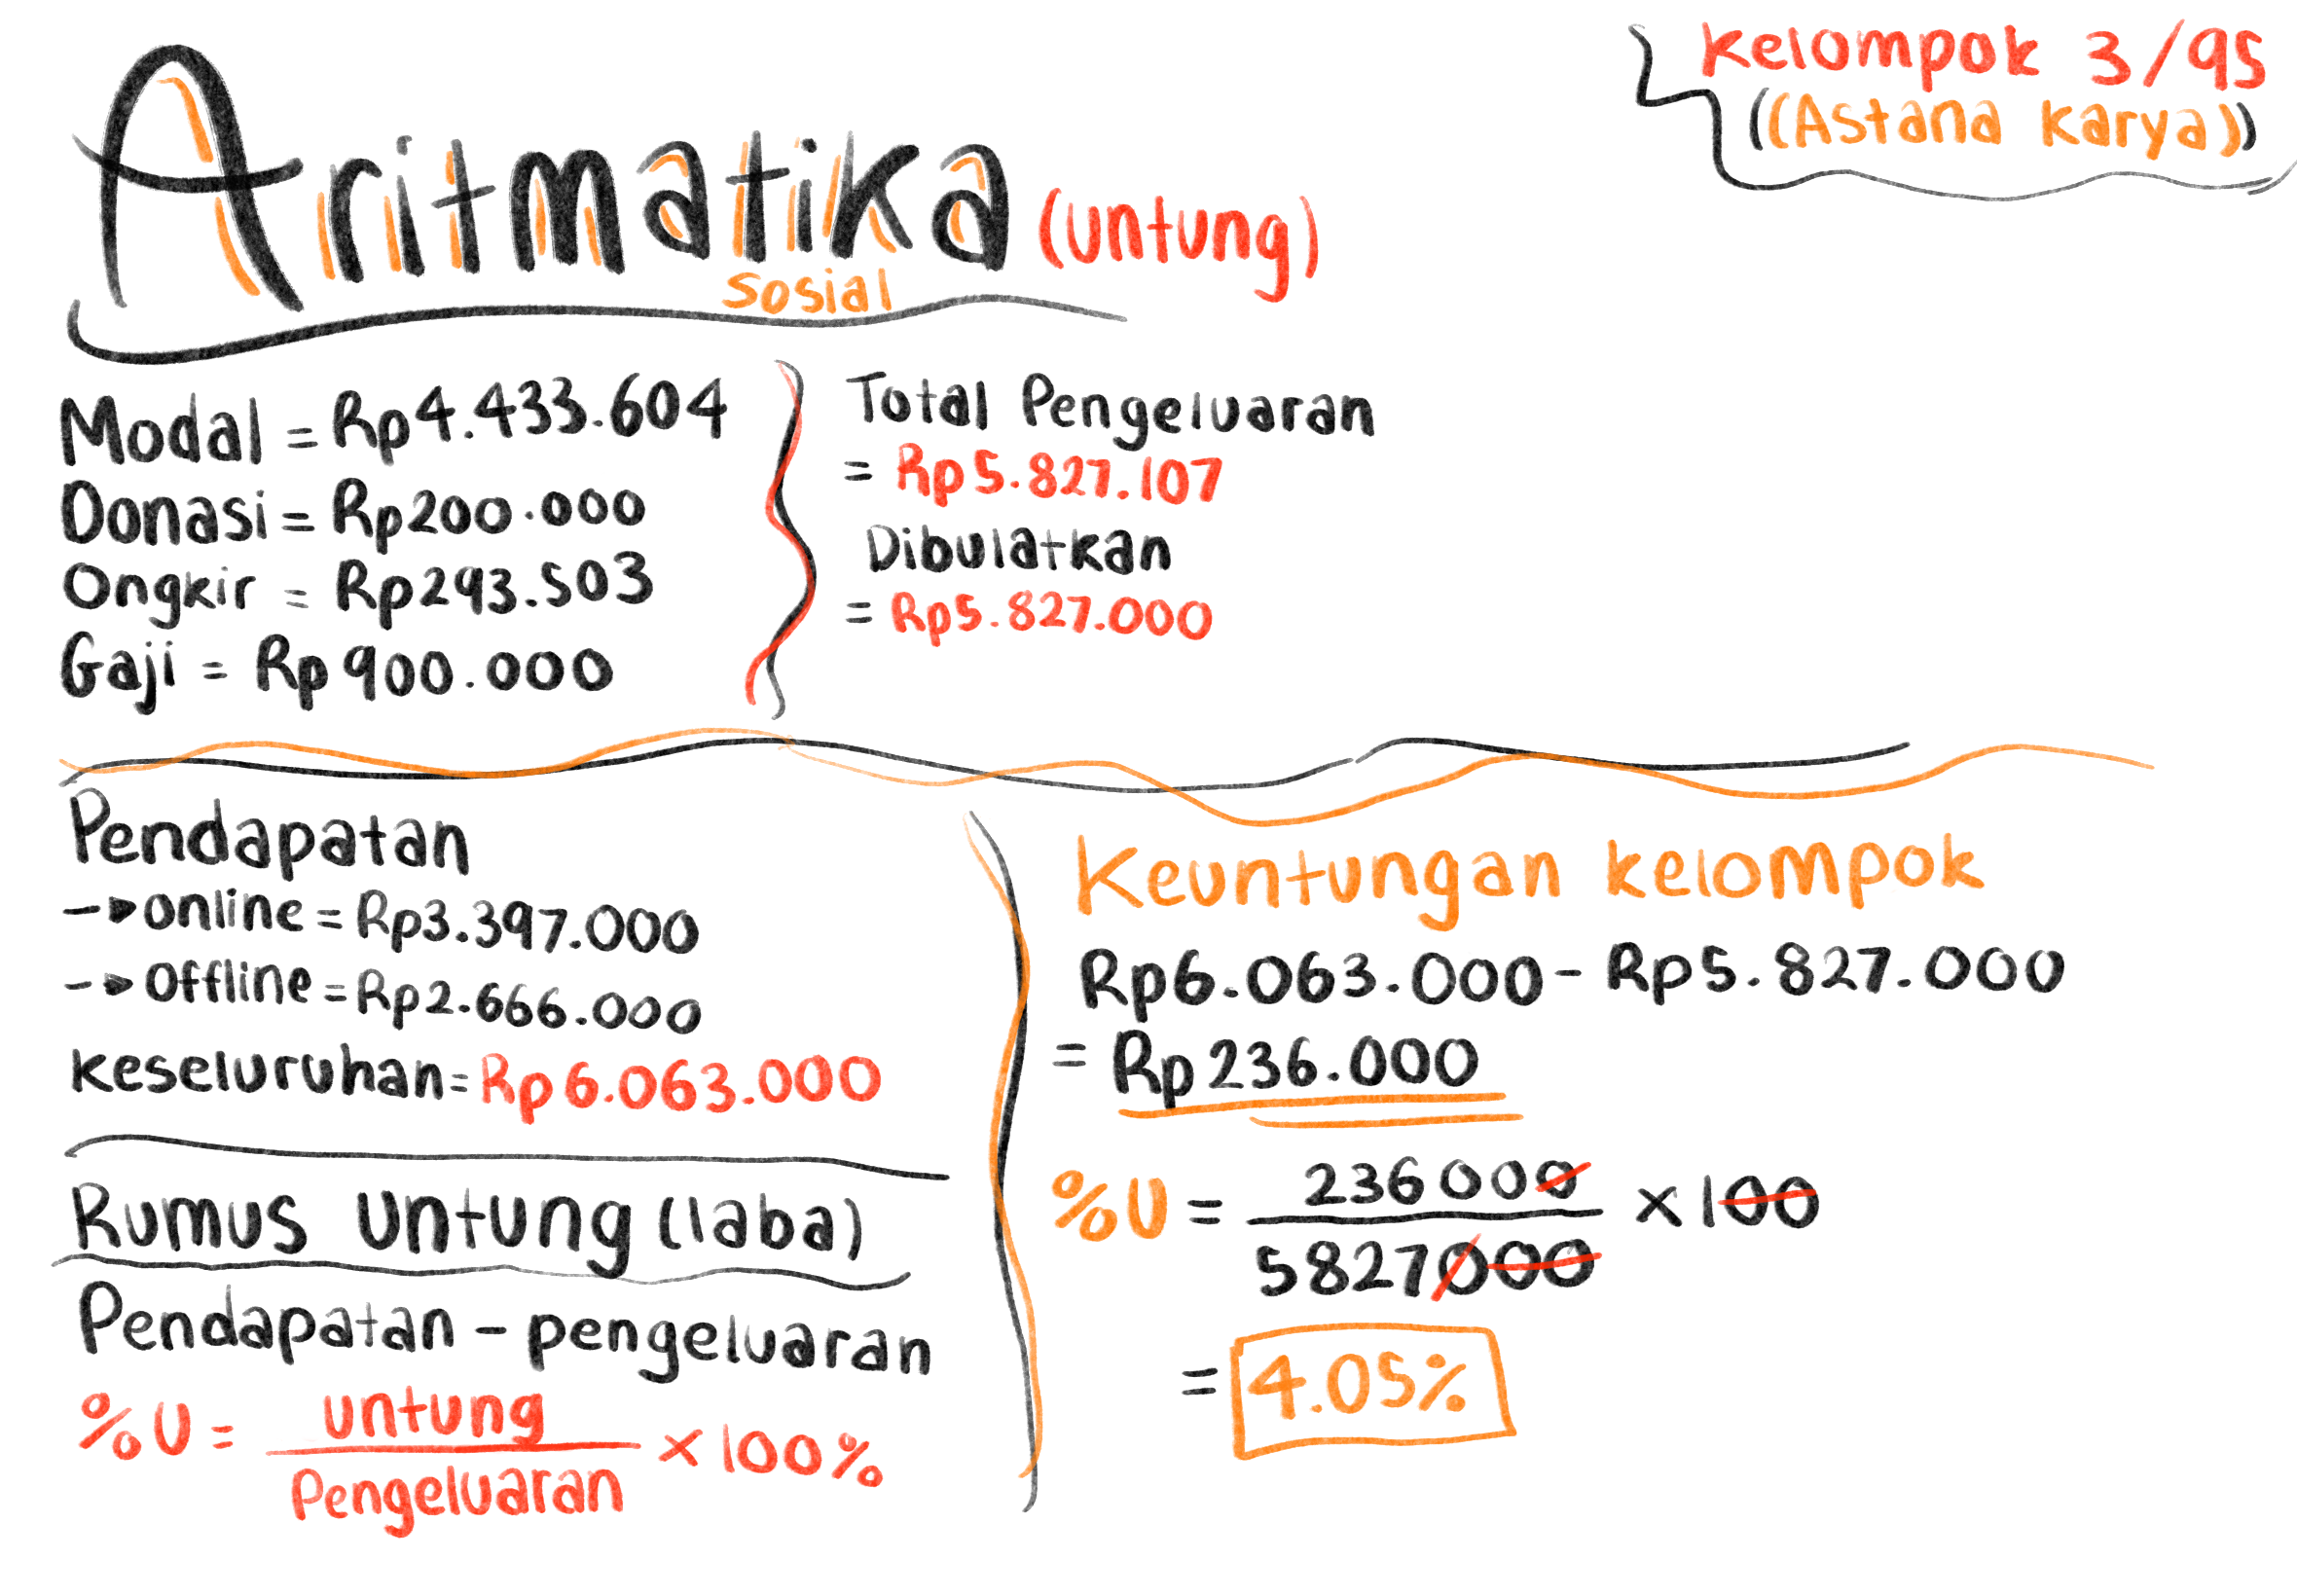 Kelompok 3/9S
((Astana Karya))
Aritmatika (Untung)
Sosial
Modal = Rp4.433.604
Donasi = Rp200.000
Ongkir = Rp293.503
Gaji = Rp 900.000
Total Pengeluaran
= Rp5.827.107
Dibulatkan
= Rp5.827.000
Pendapatan
→ online = Rp3.397.000
→ Offline = Rp2.666.000
Keseluruhan = Rp 6.063.000
Rumus Untung (laba)
Pendapatan - pengeluaran
%U = Untung / Pengeluaran × 100%
Keuntungan kelompok
Rp6.063.000 - Rp5.827.000
= Rp 236.000
%U = 236000 / 5827000 × 100
= 4.05%